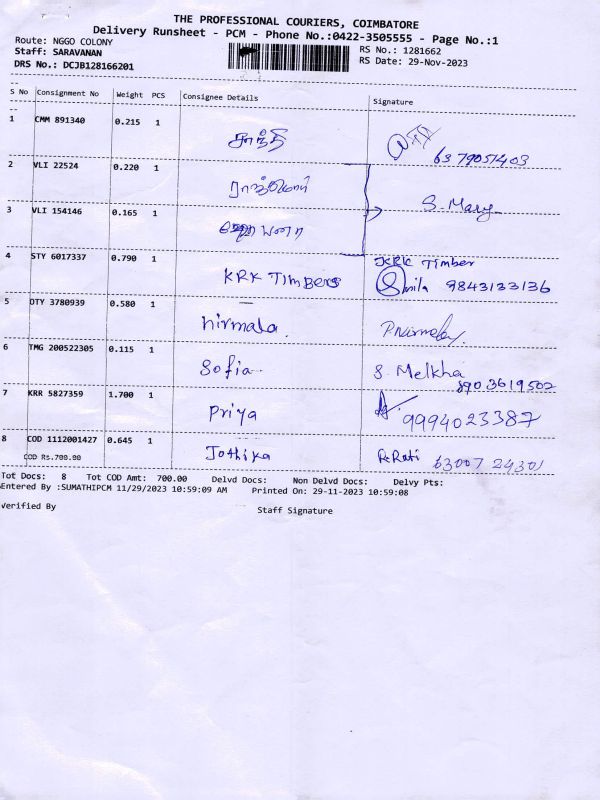 THE PROFESSIONAL COURIERS, COIMBATORE
Delivery Runsheet - PCM - Phone No.:0422-3505555 - Page No.:1
Route: NGGO COLONY
Staff: SARAVANAN
DRS No.: DCJB128166201
RS No.: 1281662
RS Date: 29-Nov-2023
S No Consignment No Weight PCS Consignee Details Signature
1 CMM 891340 0.215 1 சாந்தி 6379051403
2 VLI 22524 0.220 1
3 VLI 154146 0.165 1 S. Mary
4 STY 6017337 0.790 1 KRK TImBers KRK Timber
9843133136
5 OTY 3780939 0.580 1 nirmala. P.Nirmala
6 TMG 200522305 0.115 1 Sofia S. Melkha
8903619502
7 KRR 5827359 1.700 1 Priya 9994023387
8 COD 1112001427 0.645 1 Jothika 6300724301
COD Rs.700.00
Tot Docs: 8 Tot COD Amt: 700.00 Delvd Docs: Non Delvd Docs: Delvy Pts:
Entered By :SUMATHIPCM 11/29/2023 10:59:09 AM Printed On: 29-11-2023 10:59:08
Verified By Staff Signature